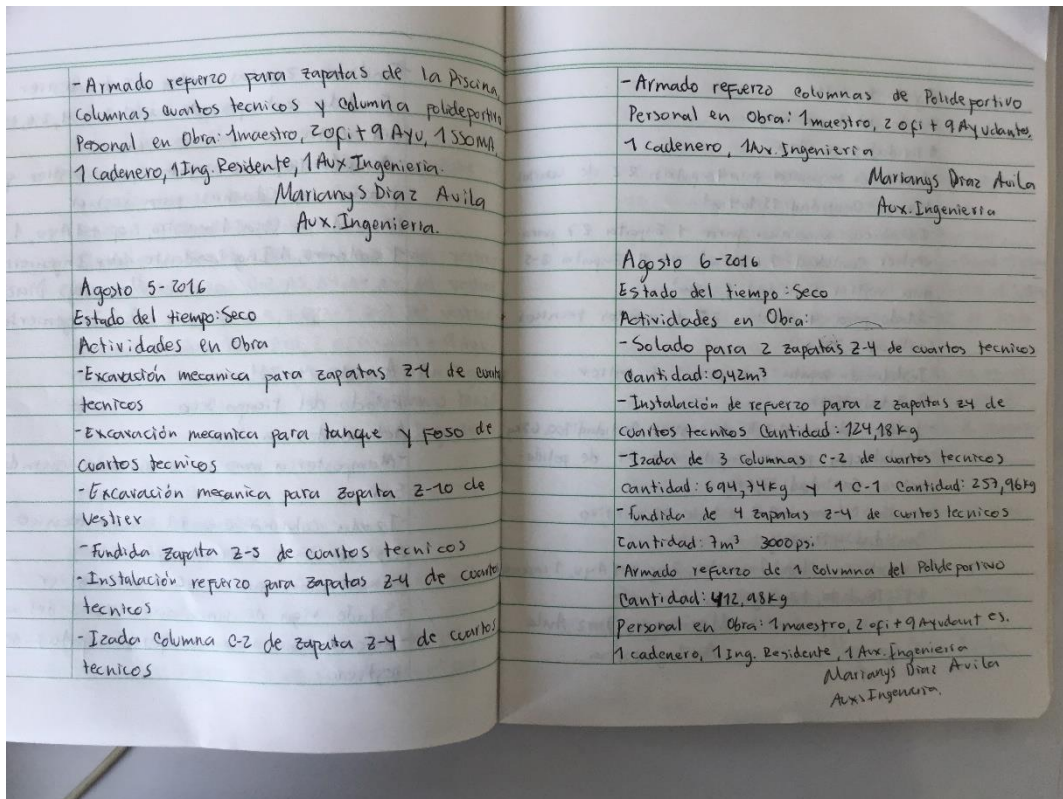 -Armado refuerzo para zapatas de la Piscina
columnas cuartos tecnicos y columna polideportivo
Pesonal en Obra: 1maestro, 2ofi + 9 Ayu, 1 SSOMA,
1 Cadenero, 1Ing. Residente, 1 Aux Ingenieria.
Marianys Diaz Avila
Aux. Ingenieria.
Agosto 5-2016
Estado del tiempo: Seco
Actividades en Obra
-Excavasión mecanica para zapatas Z-4 de cuarto
tecnicos
-Excavación mecanica para tanque y Foso de
cuartos tecnicos
-Excavación mecanica para zapata Z-10 de
Vestier
-Fundida zapata Z-5 de cuartos tecnicos
-Instalación refuerzo para zapatas Z-4 de cuarto
tecnicos
-Izada columna C-2 de zapata Z-4 de cuartos
tecnicos
-Armado refuerzo columnas de Polideportivo
Personal en Obra: 1maestro, 2 ofi + 9 Ayudantes.
1 cadenero, 1Aux. Ingenieria
Marianys Diaz Avila
Aux. Ingenieria
Agosto 6-2016
Estado del tiempo: Seco
Actividades en Obra:
-Solado para 2 zapatas Z-4 de cuartos tecnicos
Cantidad: 0,42m³
-Instalación de refuerzo para 2 zapatas Z4 de
cuartos tecnicos Cantidad: 124,18kg
-Izada de 3 columnas C-2 de cuartos tecnicos
Cantidad: 694,74kg y 1 C-1 Cantidad: 257,96kg
-fundida de 4 zapatas Z-4 de cuartos tecnicos
Cantidad: 7m³ 3000psi
-Armado refuerzo de 1 columna del Polideportivo
Cantidad: 412,98kg
Personal en Obra: 1maestro, 2 ofi+9 Ayudantes.
1 cadenero, 1 Ing. Residente, 1 Aux. Ingenieria
Marianys Diaz Avila
Aux. Ingenieria.